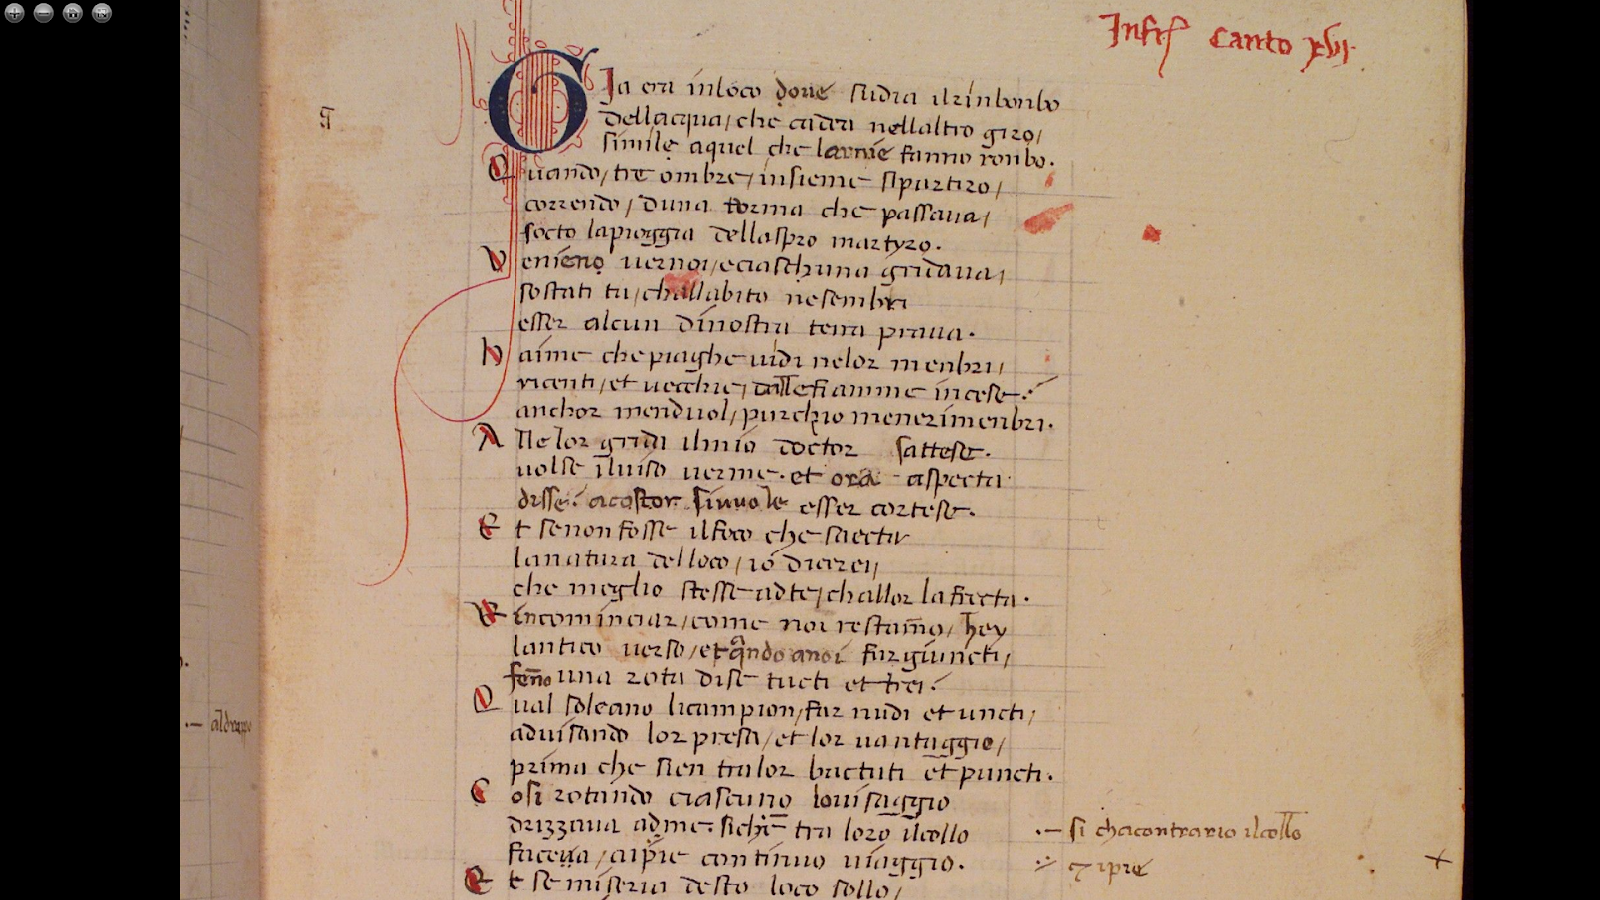 Infr̃ Canto xvij.
Gia era inloco doue sudia ilrinbonbo
dellacqua/ che cadea nellaltro giro/
simile aquel che larnie fanno ronbo.
Quando/ tre ombre/ insieme sipartiro/
correndo/ duna torma che passaua/
socto lapioggia dellaspro martyro.
Venieno uernoi/ eciaschuna gridaua/
sostati tu/ challabito nesembri
esser alcun dinostra terra praua.
Haime che piaghe uidi nelor menbri/
ricenti/ et uecchie/ dallefiamme incese.
anchor menduol/ purchio menerimenbri.
Alle lor grida ilmio doctor sattese.
uolse iluiso uerme. et ora aspecta
disse. acostor siuuole esser cortese.
Et senon fosse ilfoco che saecta
lanatura delloco/ io dicerei/
che meglio stesse adte/ challor lafrecta.
Rincominciar/ come noi restam̃o/ hey
lantico uerso/ et qãndo anoi fur giuncti/
fen̄o una rota dise tucti et trei.
Qual soleano licampion/ far nudi et uncti/
aduisando lor presa/ et lor uantaggio/
prima che sien tralor bactuti et puncti.
Cosi rotando ciascuno louisaggio
drizzaua adme. sichẽ tra loro ilcollo
faceua/ aipie continuo uiaggio.
Et se miseria desto loco sollo/
.— si chacontrario ilcollo
⁊ ipie
.— aldrappo